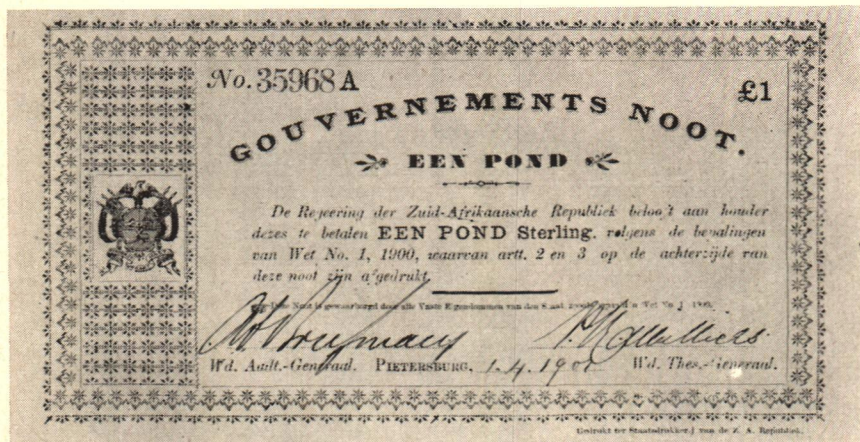 No. 35968 A
£1
GOUVERNEMENTS NOOT.
EEN POND
De Regeering der Zuid-Afrikaansche Republiek belooft aan houder
dezes te betalen EEN POND Sterling. volgens de bepalingen
van Wet No. 1, 1900, waarvan artt. 2 en 3 op de achterzijde van
deze noot zijn afgedrukt.
Noot is gewaarborgd door alle Vaste Eigendommen van den Staat
Wd. Audt.-Generaal. PIETERSBURG, 1.4.1901 Wd. Thes.-Generaal.
Gedrukt ter Staatsdrukkerij van de Z. A. Republiek.